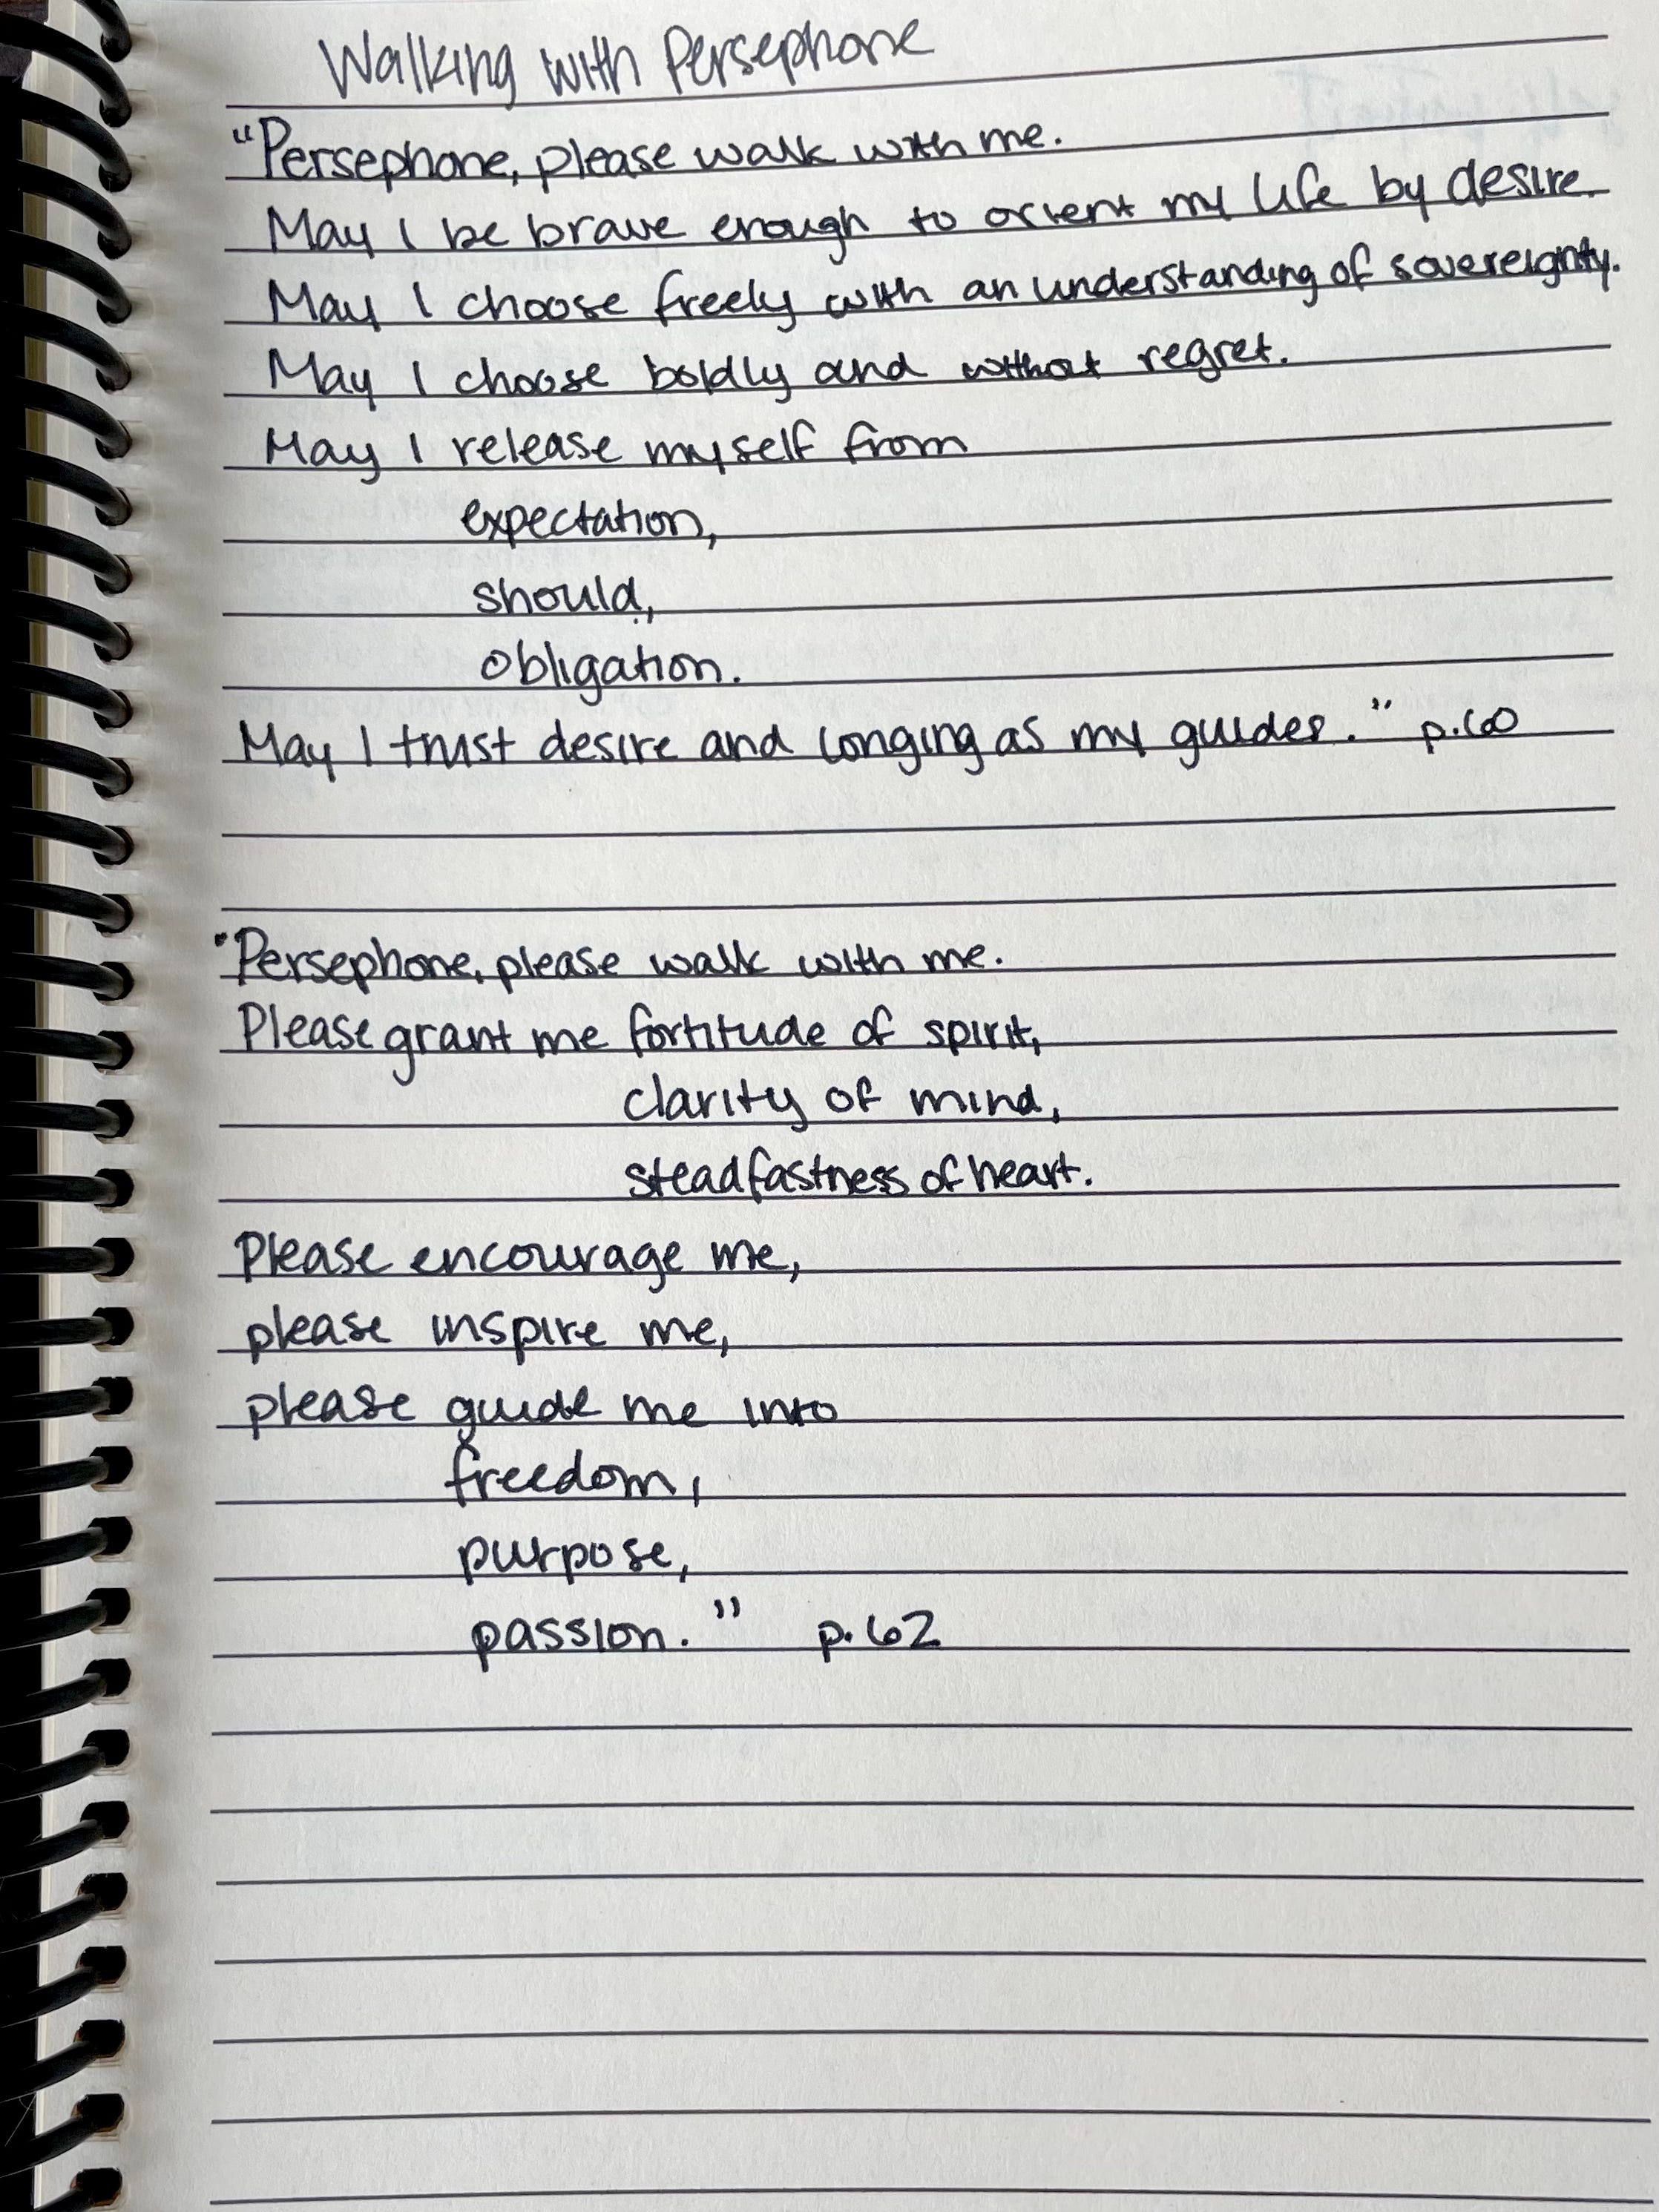 Walking with Persephone
"Persephone, please walk with me.
May I be brave enough to orient my life by desire.
May I choose freely with an understanding of sovereignty.
May I choose boldly and without regret.
May I release myself from
expectation,
should,
obligation.
May I trust desire and longing as my guides." p.60
"Persephone, please walk with me.
Please grant me fortitude of spirit,
clarity of mind,
steadfastness of heart.
Please encourage me,
please inspire me,
please guide me into
freedom,
purpose,
passion." p.62